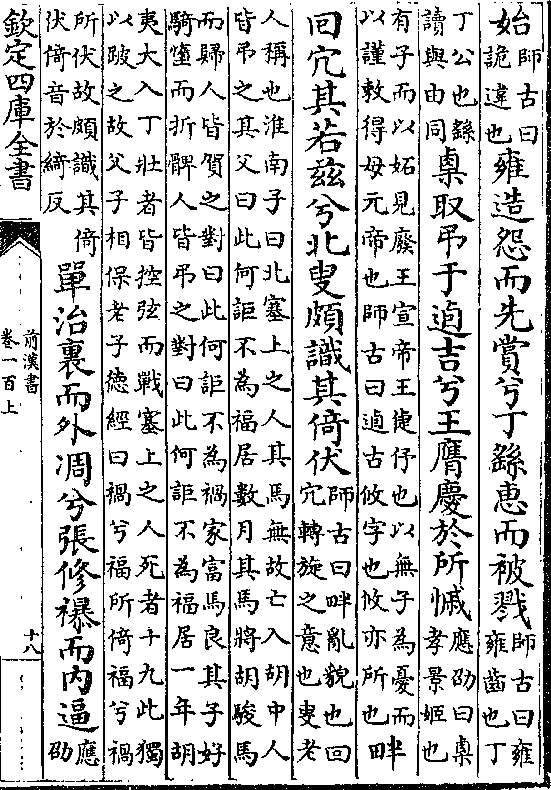 始
師古曰
詭違也
雍造怨而先賞兮丁繇惠而被戮
師古曰雍
雍齒也丁
丁公也繇
讀與由同
㮚取弔于逌吉兮王膺慶於所慼
應劭曰㮚
孝景姬也
有子而以妬見廢王宣帝王倢伃也以無子為憂而
以謹敕得母元帝也師古曰逌古攸字也攸亦所也
畔
回冗其若茲兮北叟頗識其倚伏
師古曰畔亂貌也回
冗轉旋之意也叟老
人稱也淮南子曰北塞上之人其馬無故亡入胡中人
皆弔之其父曰此何詎不為福居數月其馬將胡駿馬
而歸人皆賀之對曰此何詎不為禍家富馬良其子好
騎墮而折髀人皆弔之對曰此何詎不為福居一年胡
夷大入丁壯者皆控弦而戰塞上之人死者十九此獨
以跛之故父子相保老子德經曰禍兮福所倚福兮禍
所伏故頗識其倚
伏倚音於綺反
單治裏而外凋兮張修襮而内逼
應
劭
欽定四庫全書
前漢書
卷一百上
十八